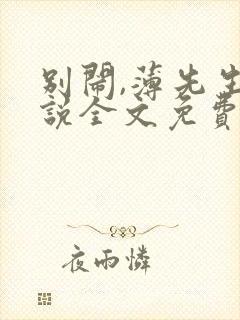 別鬧,薄先生
說全文免費
夜雨憐